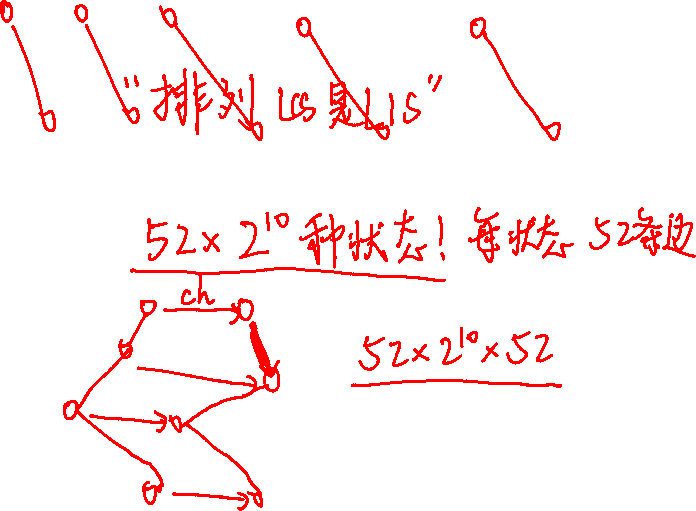 “排列 LCS 是 LIS”
52×2¹⁰种状态！每状态 52条边
ch
52×2¹⁰×52